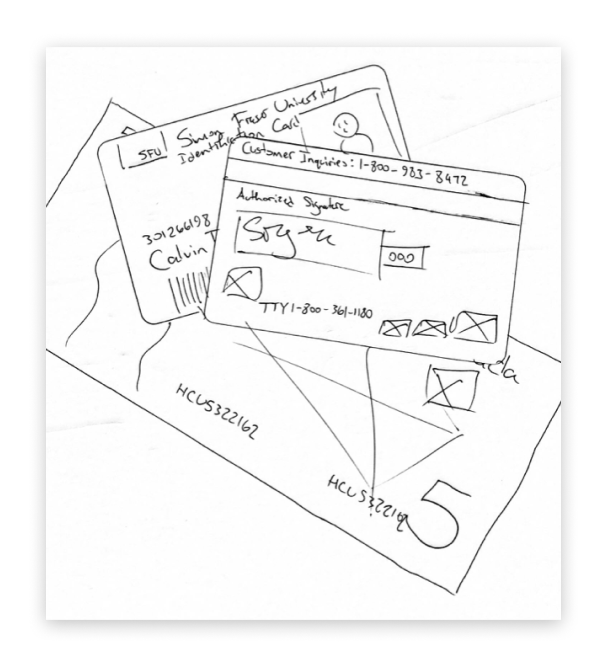 SFU
Simon Fraser University
Identification Card
301266198
Calvin
Customer Inquiries: 1-800-983-8472
Authorized Signature
000
TTY 1-800-361-1180
HCU5322162
HCU5322162
5